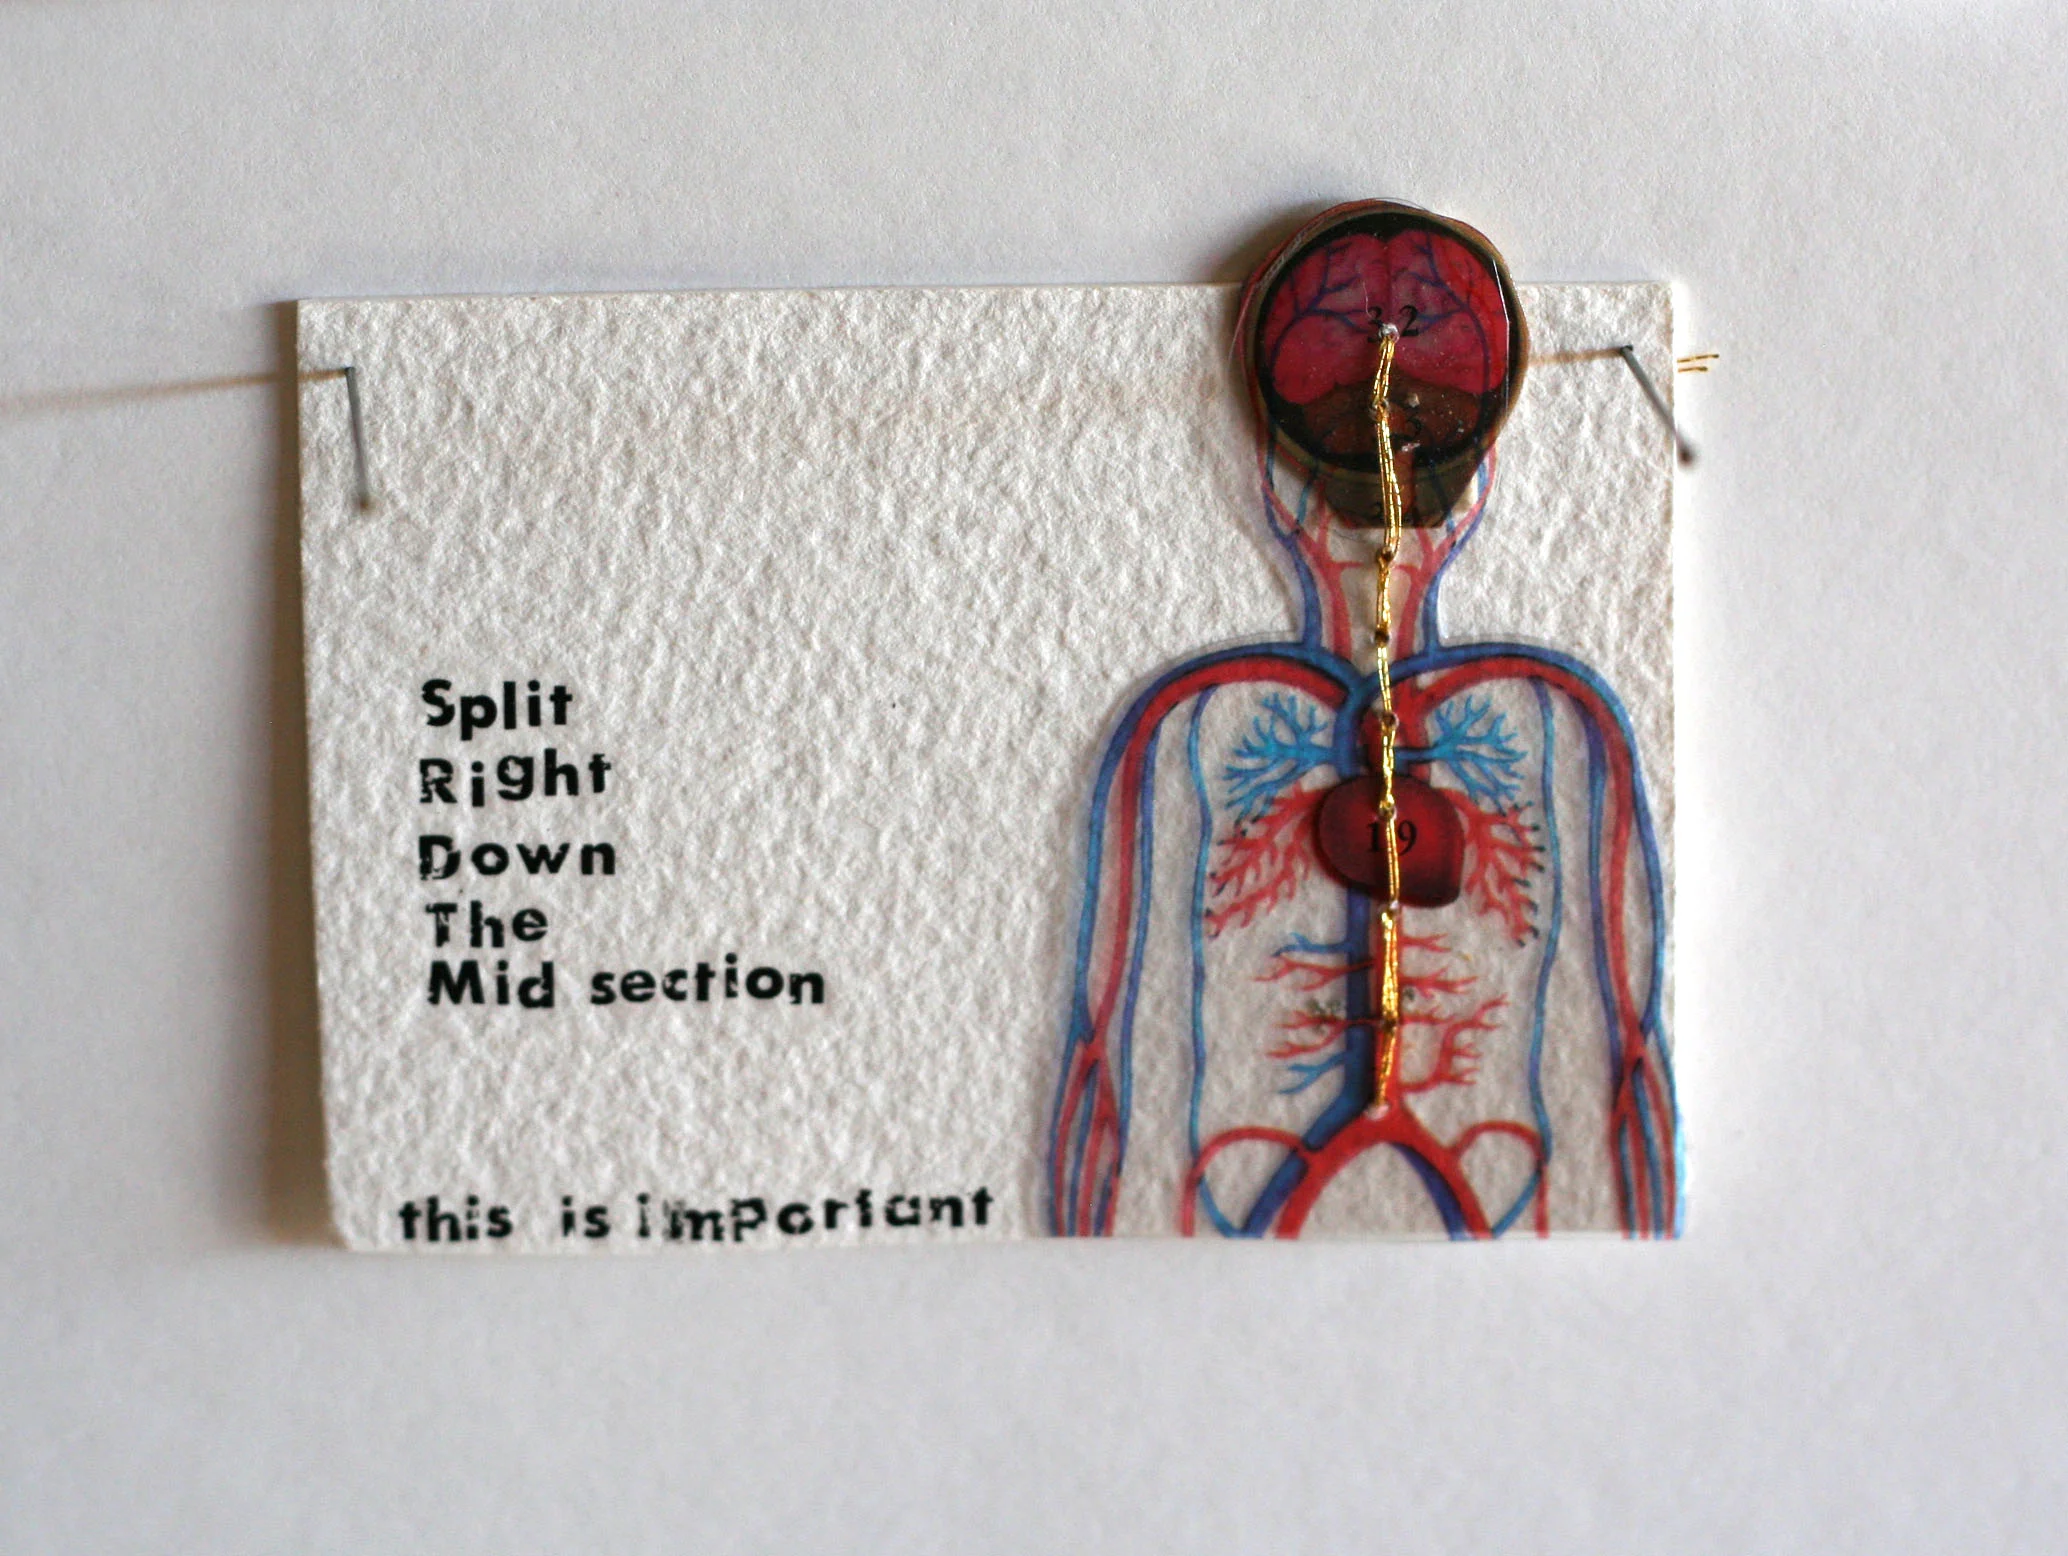 Split
Right
Down
The
Mid section
this is important
32
19